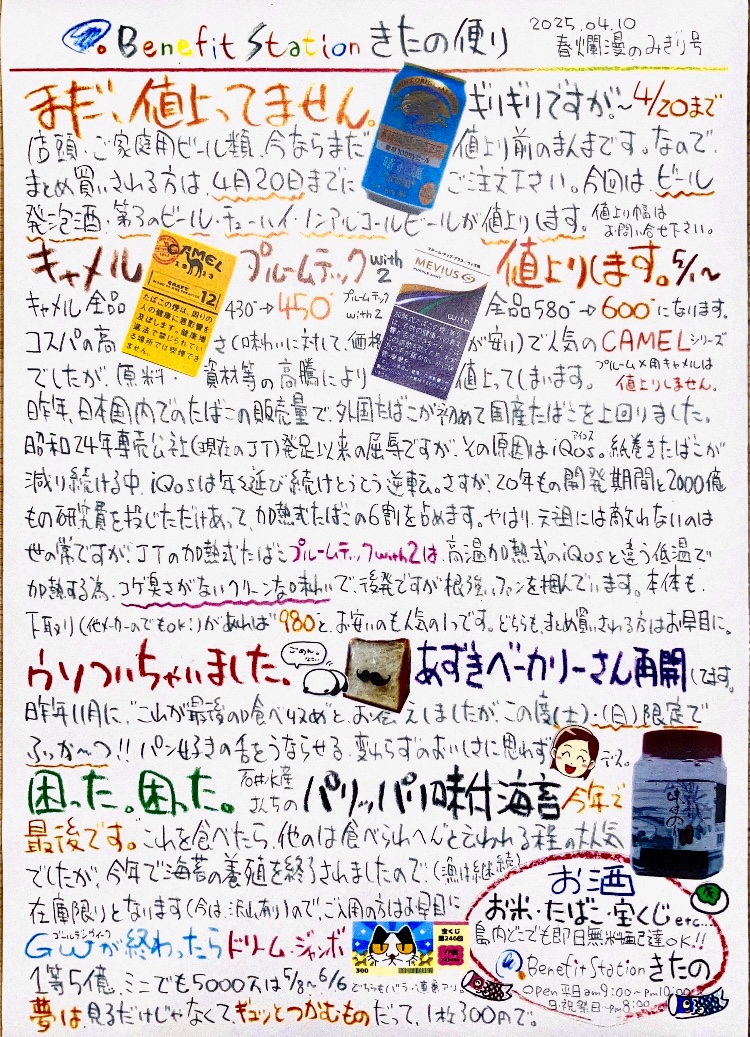 Benefit Station きたの便り
2025.04.10
春爛漫のみぎり号
まだ、値上ってません。ギリギリですが。〜4/20まで
店頭・ご家庭用ビール類、今ならまだ値上り前のまんまです。なので、
まとめ買いされる方は、4月20日までにご注文下さい。今回は、ビール
発泡酒・第3のビール・チューハイ・ノンアルコールビールが値上りします。
値上り幅は
お問い合せ下さい。
キャメル プルームテックwith2 値上りします。5/1〜
キャメル全品 430→450 プルームテックwith2 全品580→600になります。
コスパの高さ(味わいに対して、価格が安い)で人気のCAMELシリーズ
でしたが、原料・資材等の高騰により値上ってしまいます。
プルームX用キャメルは
値上りしません。
昨年、日本国内でのたばこの販売量で、外国たばこが初めて国産たばこを上回りました。
昭和24年専売公社(現在のJT)発足以来の屈辱ですが、その原因はiQos。紙巻きたばこが
アイコス
減り続ける中、iQosは年々延び続けとうとう逆転。さすが、20年もの開発期間と2000億
もの研究費を投じただけあって、加熱式たばこの6割を占めます。やはり、元祖には敵わないのは
世の常ですが、JTの加熱式たばこプルームテックwith2は、高温加熱式のiQosと違う低温で
加熱する為、コゲ臭さがないクリーンな味わいで、後発ですが根強いファンを掴んでいます。本体も、
下取り(他メーカーのでもOK:)があれば980と、お安いのも人気の1つです。どちらも、まとめ買いされる方はお早目に。
ウソついちゃいました。
ごめん。
あずきベーカリーさん再開してます。
昨年11月に、"これが最後の食べ収め"と、お伝えしましたが、この度(土)・(日)限定で
ふっか〜つ!! パン好きの舌をうならせる、変わらずのおいしさに思わずデス。
困った。困った。石井水産さんちのパリッパリ味付海苔今年で
最後です。これを食べたら、他のは食べられへんと云われる程の大人気
でしたが、今年で海苔の養殖を終了されましたので、(漁は継続)
在庫限りとなります(今は、沢山有り)ので、ご入用の方はお早目に
ゴールデンウィーク
GWが終わったらドリーム・ジャンボ
1等5億、ミニでも5000万は5/8〜6/6
どちらもバラ・連番アリ
夢は、見るだけじゃなくて、ギュッとつかむものだって、1枚300円で。
お酒
お米・たばこ・宝くじetc...
島内どこでも即日無料配達OK!!
Benefit Station きたの
Open 平日am9:00〜pm10:00
日・祝祭日〜pm8:00
CAMEL
CRAFT
12
たばこの煙は、周りの
人の健康に悪影響を
及ぼします。健康増
進法で禁じられてい
る場所では喫煙でき
ません。
MEVIUS
with
宝くじ
300